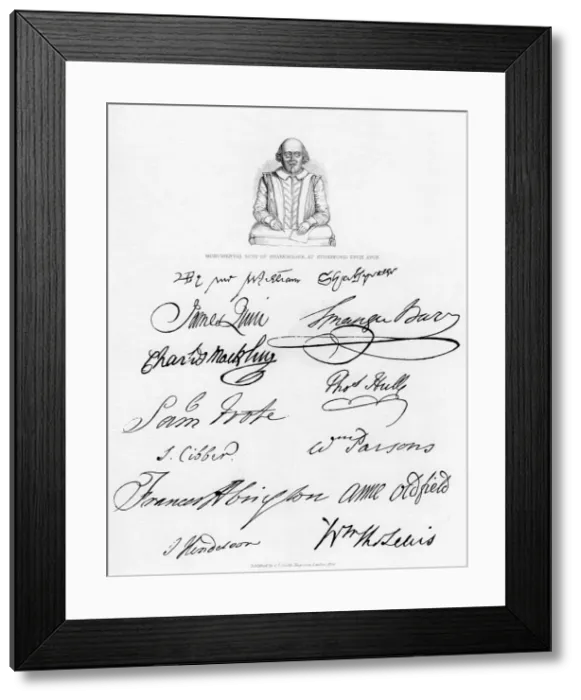 MONUMENTAL BUST OF SHAKESPEARE, AT STRATFORD UPON AVON
By me William Shakspeare
James Quin
Spranger Barry
Charles Macklin
Thos Hull
Sam Foote
T. Cibber.
Wm Parsons
Frances Abington
anne oldfield
J Henderson
Wm Thos Lewis